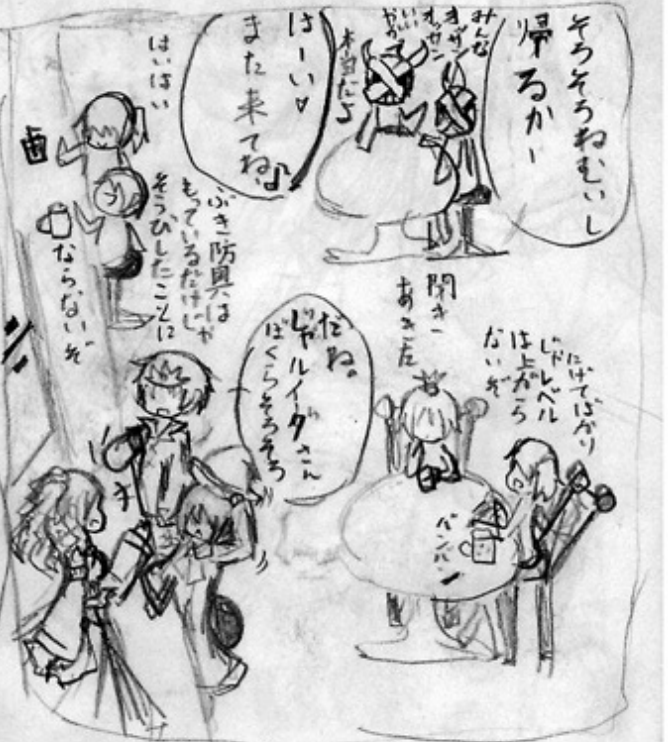 そろそろねむいし
帰るかー
みんな
オッサン
オッサン
いい
やがって
本当だよ
はーい♥
また来てね♪
はいはい
ぶき防具は
もっているだけじゃ
そうびしたことに
ならないぞ
聞き
あきた
にげてばかり
じゃレベル
は上がら
ないぞ
だね。
ジャルイダさん
ぼくらそろそろ
バンバン